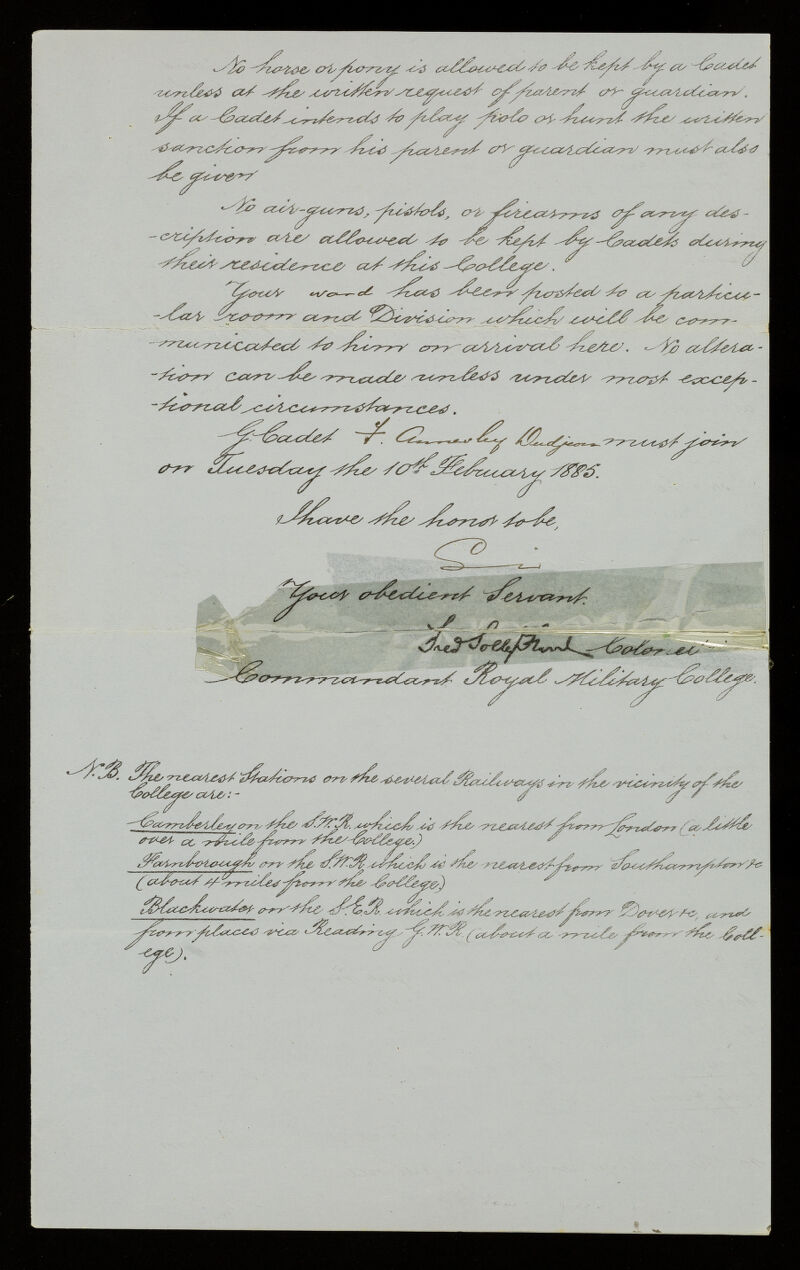 No horse or pony is allowed to be kept by a Cadet
unless at the written request of parent or guardian.
If a Cadet intends to play polo or hunt the written
sanction from his parent or guardian must also
be given
No air-guns, pistols, or firearms of any des-
-cription are allowed to be kept by Cadets during
their residence at this College.
Your ward has been posted to a particu-
-lar room and Division which will be com-
-municated to him on arrival here. No altera-
-tion can be made unless under most excep-
-tional circumstances.
G. Cadet F. Annesley Dudgeon must join
on Tuesday the 10th February 1885.
I have the honor to be,
Sir
Your obedient Servant.
Fred Solly Flood Colonel
Commandant Royal Military College.
N.B. The nearest Stations on the several Railways in the vicinity of the
College are:-
Camberley on the S.W.R. which is the nearest from London (a little
over a mile from the College)
Farnborough on the S.W.R. which is the nearest from Southampton &c
(about 4 miles from the College)
Blackwater on the S.E.R. which is the nearest from Dover &c, and
from places via Reading G.W.R. (about a mile from the Coll-
ege).